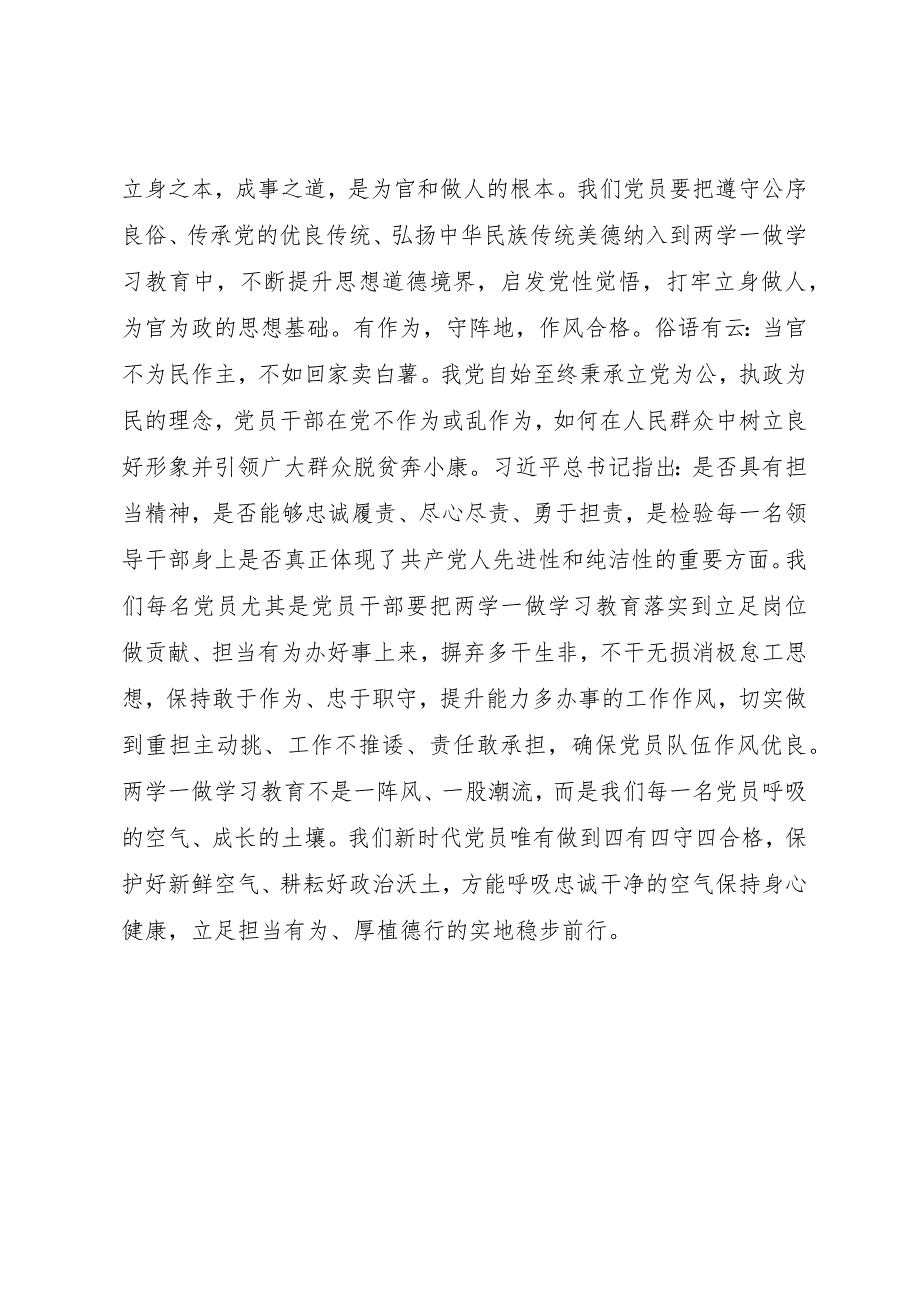 立身之本，成事之道，是为官和做人的根本。我们党员要把遵守公序
良俗、传承党的优良传统、弘扬中华民族传统美德纳入到两学一做学
习教育中，不断提升思想道德境界，启发党性觉悟，打牢立身做人，
为官为政的思想基础。有作为，守阵地，作风合格。俗语有云：当官
不为民作主，不如回家卖白薯。我党自始至终秉承立党为公，执政为
民的理念，党员干部在党不作为或乱作为，如何在人民群众中树立良
好形象并引领广大群众脱贫奔小康。习近平总书记指出：是否具有担
当精神，是否能够忠诚履责、尽心尽责、勇于担责，是检验每一名领
导干部身上是否真正体现了共产党人先进性和纯洁性的重要方面。我
们每名党员尤其是党员干部要把两学一做学习教育落实到立足岗位
做贡献、担当有为办好事上来，摒弃多干生非，不干无损消极怠工思
想，保持敢于作为、忠于职守，提升能力多办事的工作作风，切实做
到重担主动挑、工作不推诿、责任敢承担，确保党员队伍作风优良。
两学一做学习教育不是一阵风、一股潮流，而是我们每一名党员呼吸
的空气、成长的土壤。我们新时代党员唯有做到四有四守四合格，保
护好新鲜空气、耕耘好政治沃土，方能呼吸忠诚干净的空气保持身心
健康，立足担当有为、厚植德行的实地稳步前行。